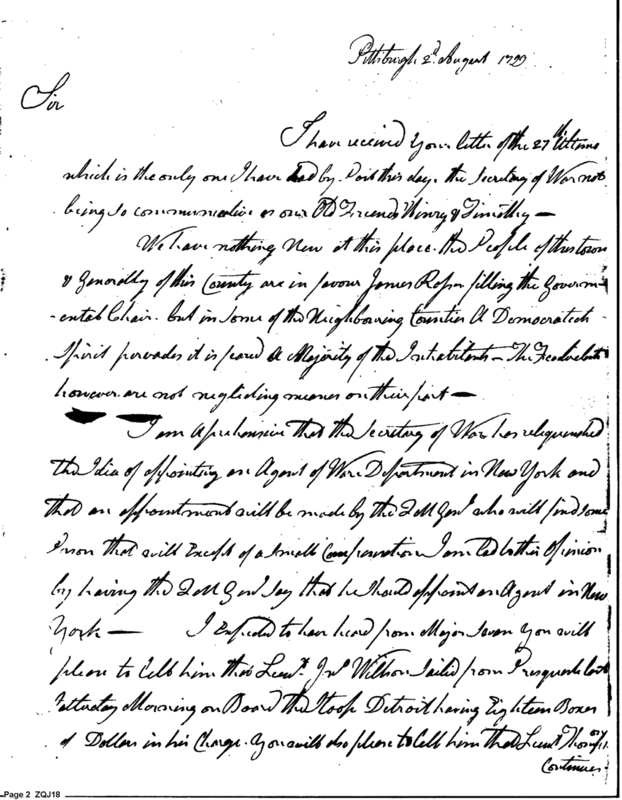 Pittsburgh 2d August 1799
Sir
I have received Your letter of the 27th Ultimo
which is the only one I have had by Post this day. the Secretary of War not
being so communicative as our Old Friends Henry & Timothy —
We have nothing New at this place. the People of this town
& Generally of this County are in favour James Ross filling the Governm-
-ental Chair. but in some of the Neighbouring Counties A Democratick
Spirit pervades it is feared a Majority of the Inhabitants — The Feadrelests
however are not neglicting means on their part —
I am Aprehensive that the Secretary of War has relequenshed
the Idia of appointing an Agent of War Department in New York and
that an appointment will be made by the Q M Genl who will find some
Person that will Except of a Small Compensation I am led to this Opinion
by having the Q M Genl say that he should appoint an Agent in New
York — I Expected to have heard from Major You will
please to tell him that Lieut Jno Wilson Sailed from Presquele last
Satturday Morning on Board the Sloop Detroit having Eighteen Boxes
of Dollars in his Charge. You will also please to tell him that Lieut
Continues
Page 2 ZQJ18